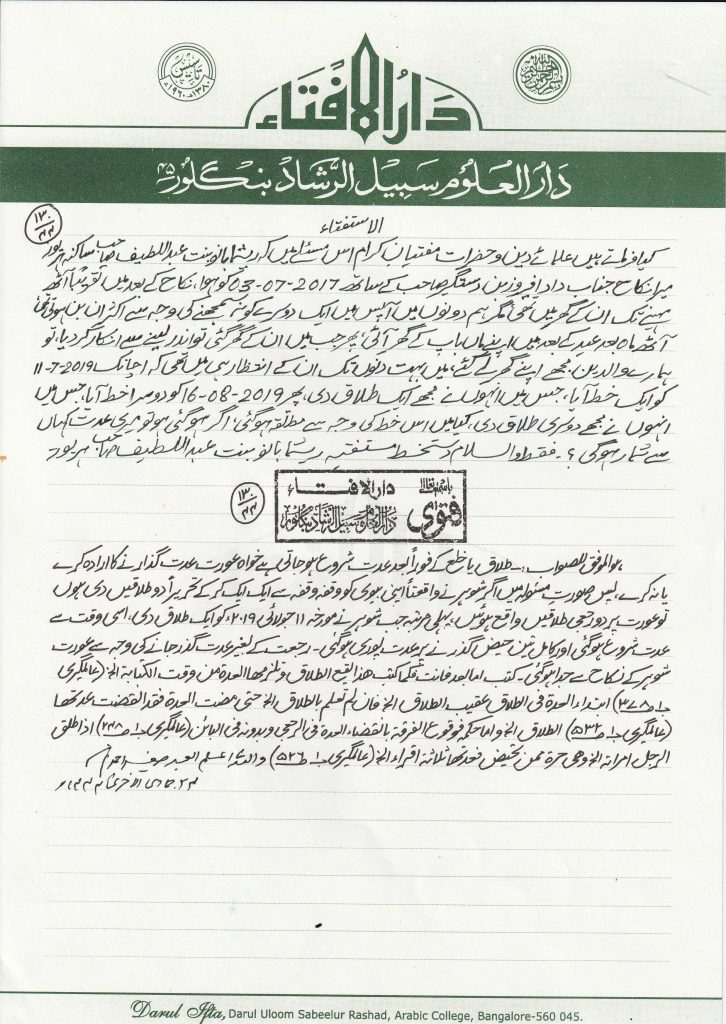 تاسیس
۱۳۸۰ھ ۱۹۶۰ء
دَارُالاِفْتَاء
بسم اللہ الرحمن الرحیم
دَارُالعُلُوم سَبِيلُ الرَّشَاد بنگلور ۴۵
الاستفتاء
۱۳۰/۴۴
کیا فرماتے ہیں علمائے دین وحضرات مفتیان کرام اس مسئلہ میں کہ ریشما بانو بنت عبد اللطیف صاحب ساکنہ ہریور
میرا نکاح جناب دادا فیروز بن دستگیر صاحب کے ساتھ 2017-07-03 کو ہوا، نکاح کے بعد میں تقریباً آٹھ
مہینے تک ان کے گھر میں تھی مگر ہم دونوں میں آپس میں ایک دوسرے کو نہ سمجھنے کی وجہ سے اکثر ان بن ہوتی تھی
آٹھ ماہ بعد عید کے بعد میں اپنے ماں باپ کے گھر آئی، پھر جب میں ان کے گھر گئی تو اندر لینے سے انکار کردیا، تو
ہمارے والدین مجھے اپنے گھر لے گئے، میں بہت دنوں تک ان کے انتظار ہی میں تھی کہ اچانک 2019-7-11
کو ایک خط آیا، جس میں انہوں نے مجھے ایک طلاق دی، پھر 2019-08-16 کو دوسرا خط آیا، جس میں
انہوں نے مجھے دوسری طلاق دی، کیا میں اس خط کی وجہ سے مطلقہ ہوگئی، اگر ہوگئی ہو تو میری عدت کہاں
سے شمار ہوگی ؟ ۔ فقط والسلام دستخط مستفتیہ ریشما بانو بنت عبد اللطیف صاحب ہریور
۱۳۰/۴۴
باسمہ تعالیٰ
فتویٰ
دارالافتاء
دارالعلوم سبیل الرشاد بنگلور
ہو الموفق للصواب :۔ طلاق یا خلع کے فوراً بعد عدت شروع ہوجاتی ہے خواہ عورت عدت گذارنے کا ارادہ کرے
یا نہ کرے، پس صورت مسئولہ میں اگر شوہر نے واقعتاً اپنی بیوی کو وقفہ وقفہ سے ایک ایک کرکے تحریراً دو طلاقیں دی ہوں
تو عورت پر دو رجعی طلاقیں واقع ہوئیں، پہلی مرتبہ جب شوہر نے مورخہ ۱۱ جولائی ۲۰۱۹ء کو ایک طلاق دی، اسی وقت سے
عدت شروع ہوگئی اور کامل تین حیض گذرنے پر عدت پوری ہوگئی۔ رجعت کے بغیر عدت گذر جانے کی وجہ سے عورت
شوہر کے نکاح سے جدا ہوگئی۔ کتب اما بعد فانت طالق فکما کتب هذا یقع الطلاق وتلزمها العدة من وقت الکتابة الخ (عالمگیری
ج۱ ص۳۷۸) ابتداء العدة فی الطلاق عقیب الطلاق الخ فان لم تعلم بالطلاق الخ حتی مضت العدة فقد انقضت عدتها
(عالمگیری ج۱ ص۵۳۲) الطلاق الخ واما حکمه فوقوع الفرقة بانقضاء العدة فی الرجعی وبدونه فی البائن (عالمگیری ج۱ ص۳۴۸) اذا طلق
الرجل امرأته الخ وهی حرة ممن تحیض فعدتها ثلاثة اقراء الخ (عالمگیری ج۱ ص۵۲۶) واللہ اعلم العبد صغیر احمد
جمادی الاخریٰ
Darul Ifta, Darul Uloom Sabeelur Rashad, Arabic College, Bangalore-560 045.